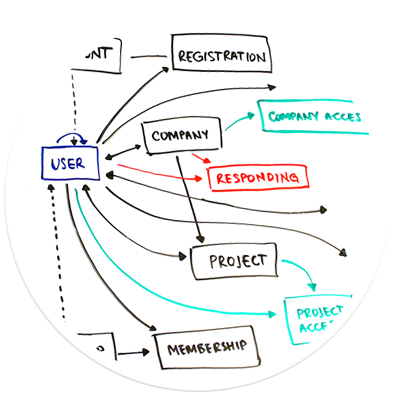 NT
REGISTRATION
COMPANY ACCES
COMPANY
USER
RESPONDING
PROJECT
PROJECT
ACCE
MEMBERSHIP